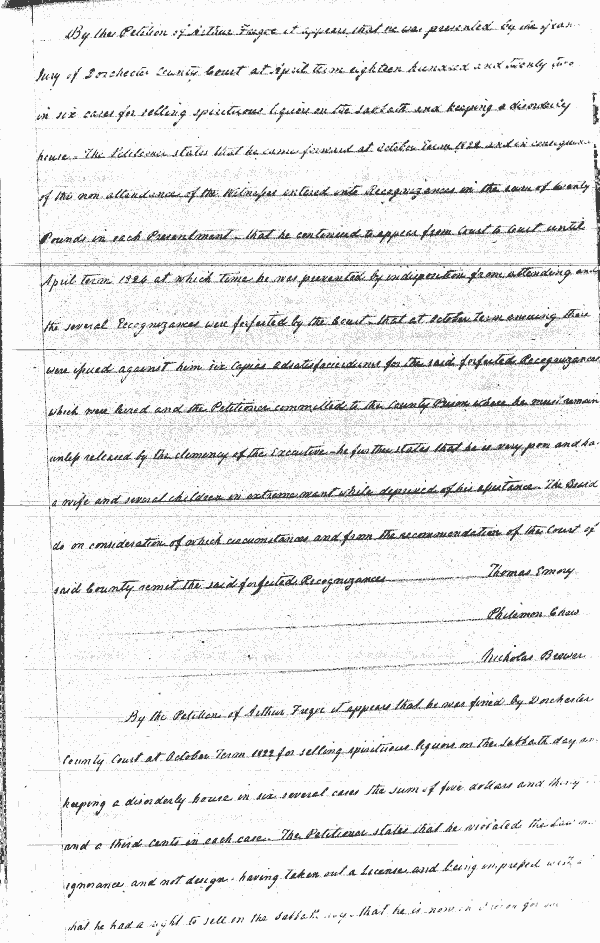 By the Petition of Arthur Fugee it appears that he was presented by the Gran
Jury of Dorchester County Court at April term eighteen hundred and twenty two
in six cases for selling spirituous liquors on the Sabbath and keeping a disorderly
house. The Petitioner states that he came forward at October Term 1822 and in conseque
of the non attendance of the Witnesses entered into Recognizances in the sum of twenty
Pounds in each Presentment. that he continued to appear from Court to Court until
April term 1824 at which time he was prevented by indisposition from attending and
the several Recognizances were forfeited by the Court. that at October term ensuing there
were issued against him six capias adsatisfaciendums for the said forfeited Recognizances
which were served and the Petitioner committed to the County Prison where he must remain
unless released by the clemency of the Executive - he further states that he is very poor and ha
a wife and several children in extreme want while deprived of his assistance. The Board
do on consideration of which circumstances and from the recommendation of the Court of
said County remit the said forfeited Recognizances
Thomas Emory
Philemon Chew
Nicholas Brewer
By the Petition of Arthur Fugee it appears that he was fined by Dorchester
County Court at October Term 1822 for selling spirituous liquors on the Sabbath day an
keeping a disorderly house in six several cases the sum of five dollars and thirty
and a third cents in each case. The Petitioner states that he violated the Law
ignorance and not design - having taken out a License and being impressed with
that he had a right to sell on the Sabbath day - that he is now in Prison for